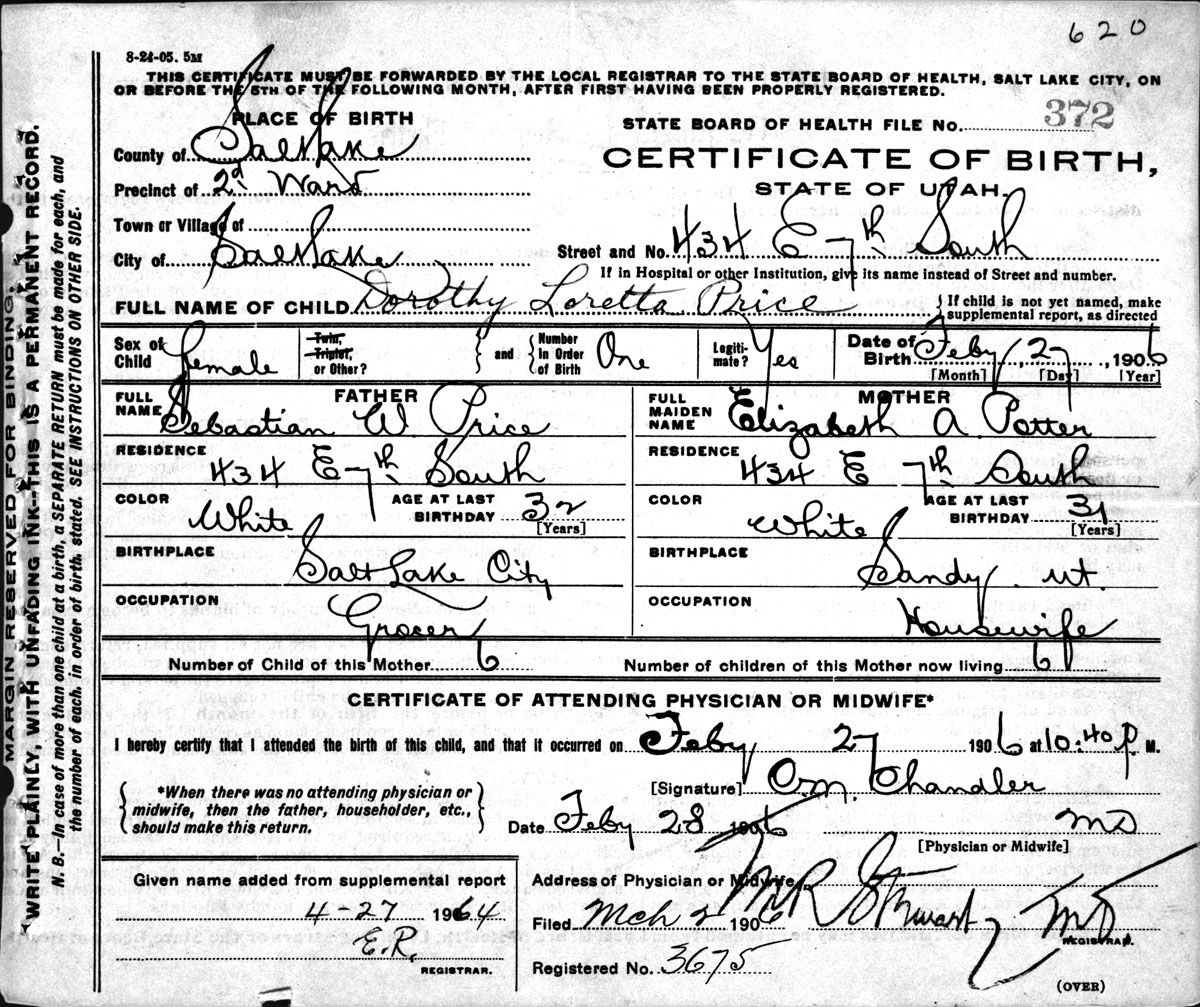 620
8-24-05. 5M
THIS CERTIFICATE MUST BE FORWARDED BY THE LOCAL REGISTRAR TO THE STATE BOARD OF HEALTH, SALT LAKE CITY, ON
OR BEFORE THE 5TH OF THE FOLLOWING MONTH, AFTER FIRST HAVING BEEN PROPERLY REGISTERED.
PLACE OF BIRTH
STATE BOARD OF HEALTH FILE No. 372
County of Salt Lake
CERTIFICATE OF BIRTH,
STATE OF UTAH.
Precinct of 2d Ward
Town or Village of
City of Salt Lake
Street and No. 434 E 7th South
If in Hospital or other Institution, give its name instead of Street and number.
FULL NAME OF CHILD Dorothy Loretta Price
If child is not yet named, make
supplemental report, as directed
Sex of Child Female
Twin, Triplet, or Other?
and Number in Order of Birth One
Legiti-mate? Yes
Date of Birth Feby 27, 1906
[Month] [Day] [Year]
FATHER
FULL NAME Sebastian W. Price
RESIDENCE 434 E 7th South
COLOR White
AGE AT LAST BIRTHDAY 32
[Years]
BIRTHPLACE Salt Lake City
OCCUPATION Grocer
MOTHER
FULL MAIDEN NAME Elizabeth A Potter
RESIDENCE 434 E 7th South
COLOR White
AGE AT LAST BIRTHDAY 31
[Years]
BIRTHPLACE Sandy. ut
OCCUPATION Housewife
Number of Child of this Mother 6
Number of children of this Mother now living 6
CERTIFICATE OF ATTENDING PHYSICIAN OR MIDWIFE*
I hereby certify that I attended the birth of this child, and that it occurred on Feby 27 1906 at 10:40 P. M.
*When there was no attending physician or
midwife, then the father, householder, etc.,
should make this return.
[Signature] O.M. Chandler
Date Feby 28 1906 MD
[Physician or Midwife]
Given name added from supplemental report
4-27 1964
E.R.
REGISTRAR.
Address of Physician or Midwife
Filed Mch 2 1906 M R Stewart MD
REGISTRAR.
Registered No. 3675
(OVER)
MARGIN RESERVED FOR BINDING.
WRITE PLAINLY, WITH UNFADING INK--THIS IS A PERMANENT RECORD.
N. B.—In case of more than one child at a birth, a SEPARATE RETURN must be made for each, and
the number of each, in order of birth, stated. SEE INSTRUCTIONS ON OTHER SIDE.